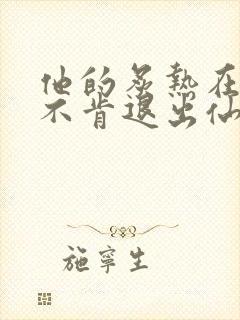 他的炙热在
不肯退出仙
施寧生